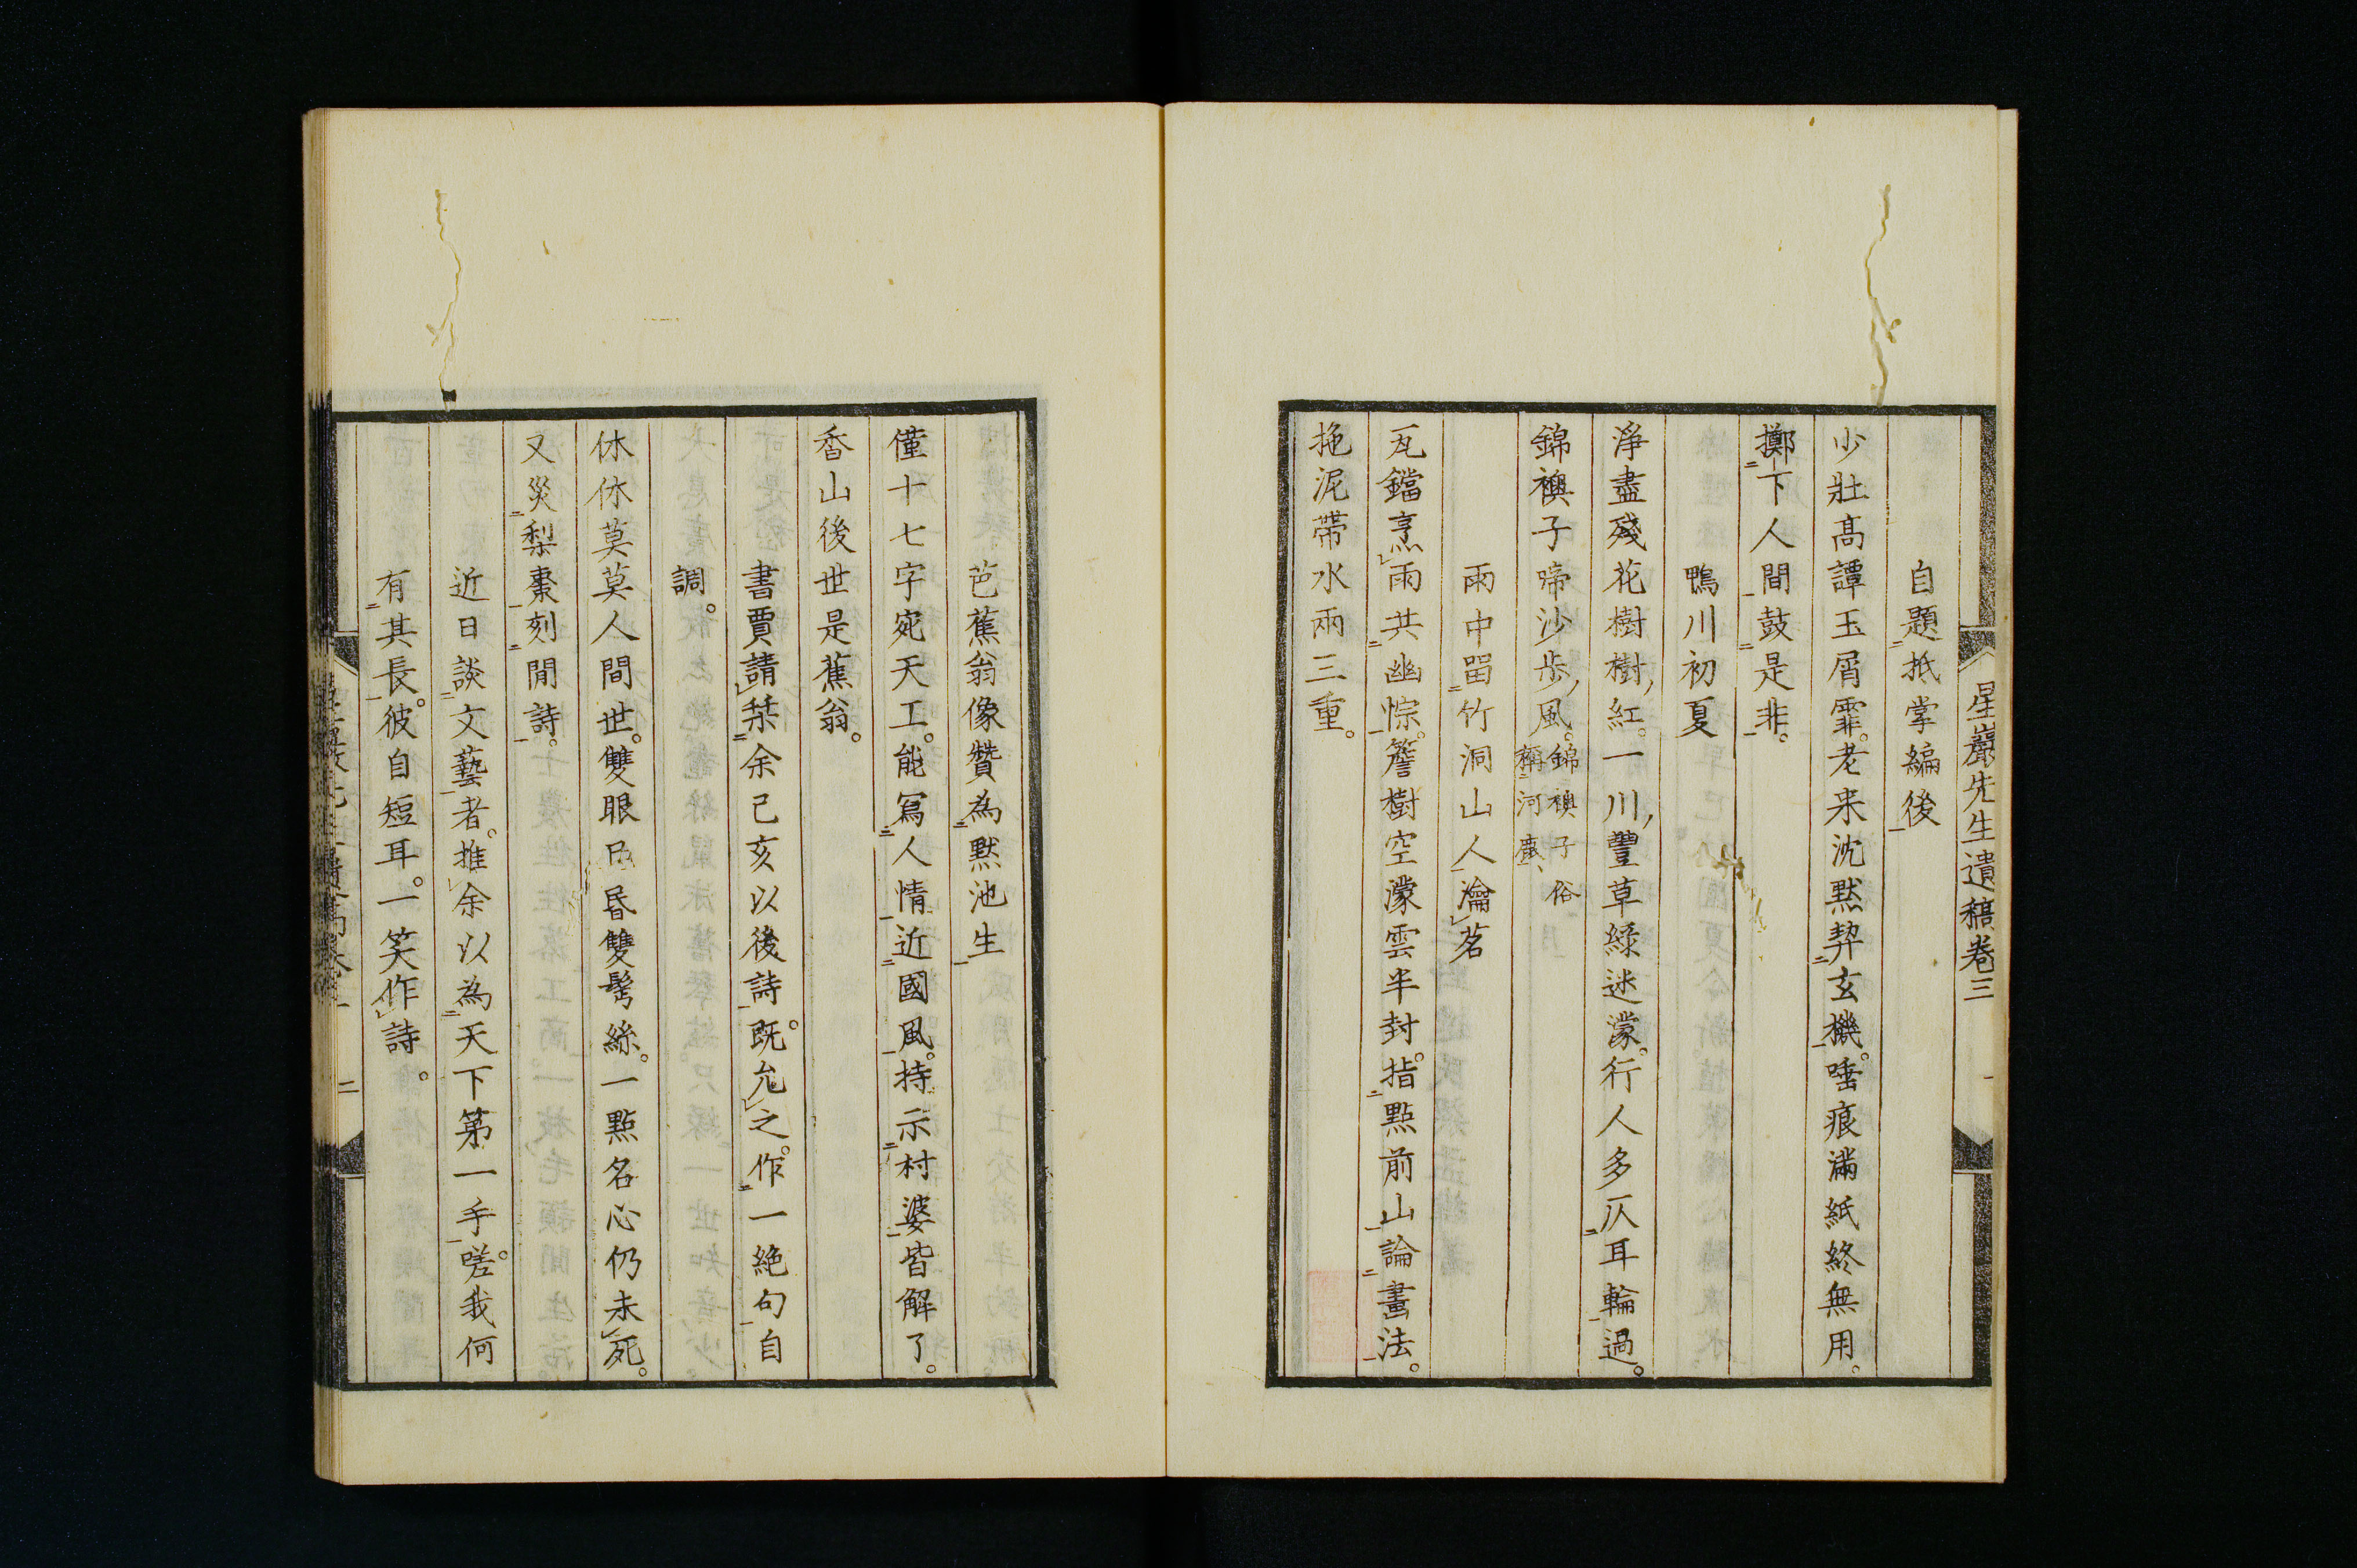 星巖先生遺稿卷三 一
自題抵掌編後
少壯高譚玉屑霏。老来沈黙契玄機。唾痕滿紙終無用。
擲下人間鼓是非。
鴨川初夏
淨盡殘花樹樹紅。一川豐草綠迷濛。行人多仄耳輪過。
錦襖子啼沙步風。錦襖子俗
稱河鹿
雨中畱竹洞山人瀹茗
瓦鐺烹雨共幽悰。簷樹空濛雲半封。指點前山論畫法。
拖泥帶水兩三重。
芭蕉翁像贊為黙池生
僅十七字宛天工。能寫人情近國風。持示村婆皆解了。
香山後世是蕉翁。
書賈請栞余己亥以後詩。既允之。作一絶句自
調。
休休莫莫人間世。雙眼昏雙鬢絲。一點名心仍未死。
又災梨棗刻閒詩。
近日談文藝者。推余以為天下第一手。嗟我何
有其長。彼自短耳。一笑作詩。
二